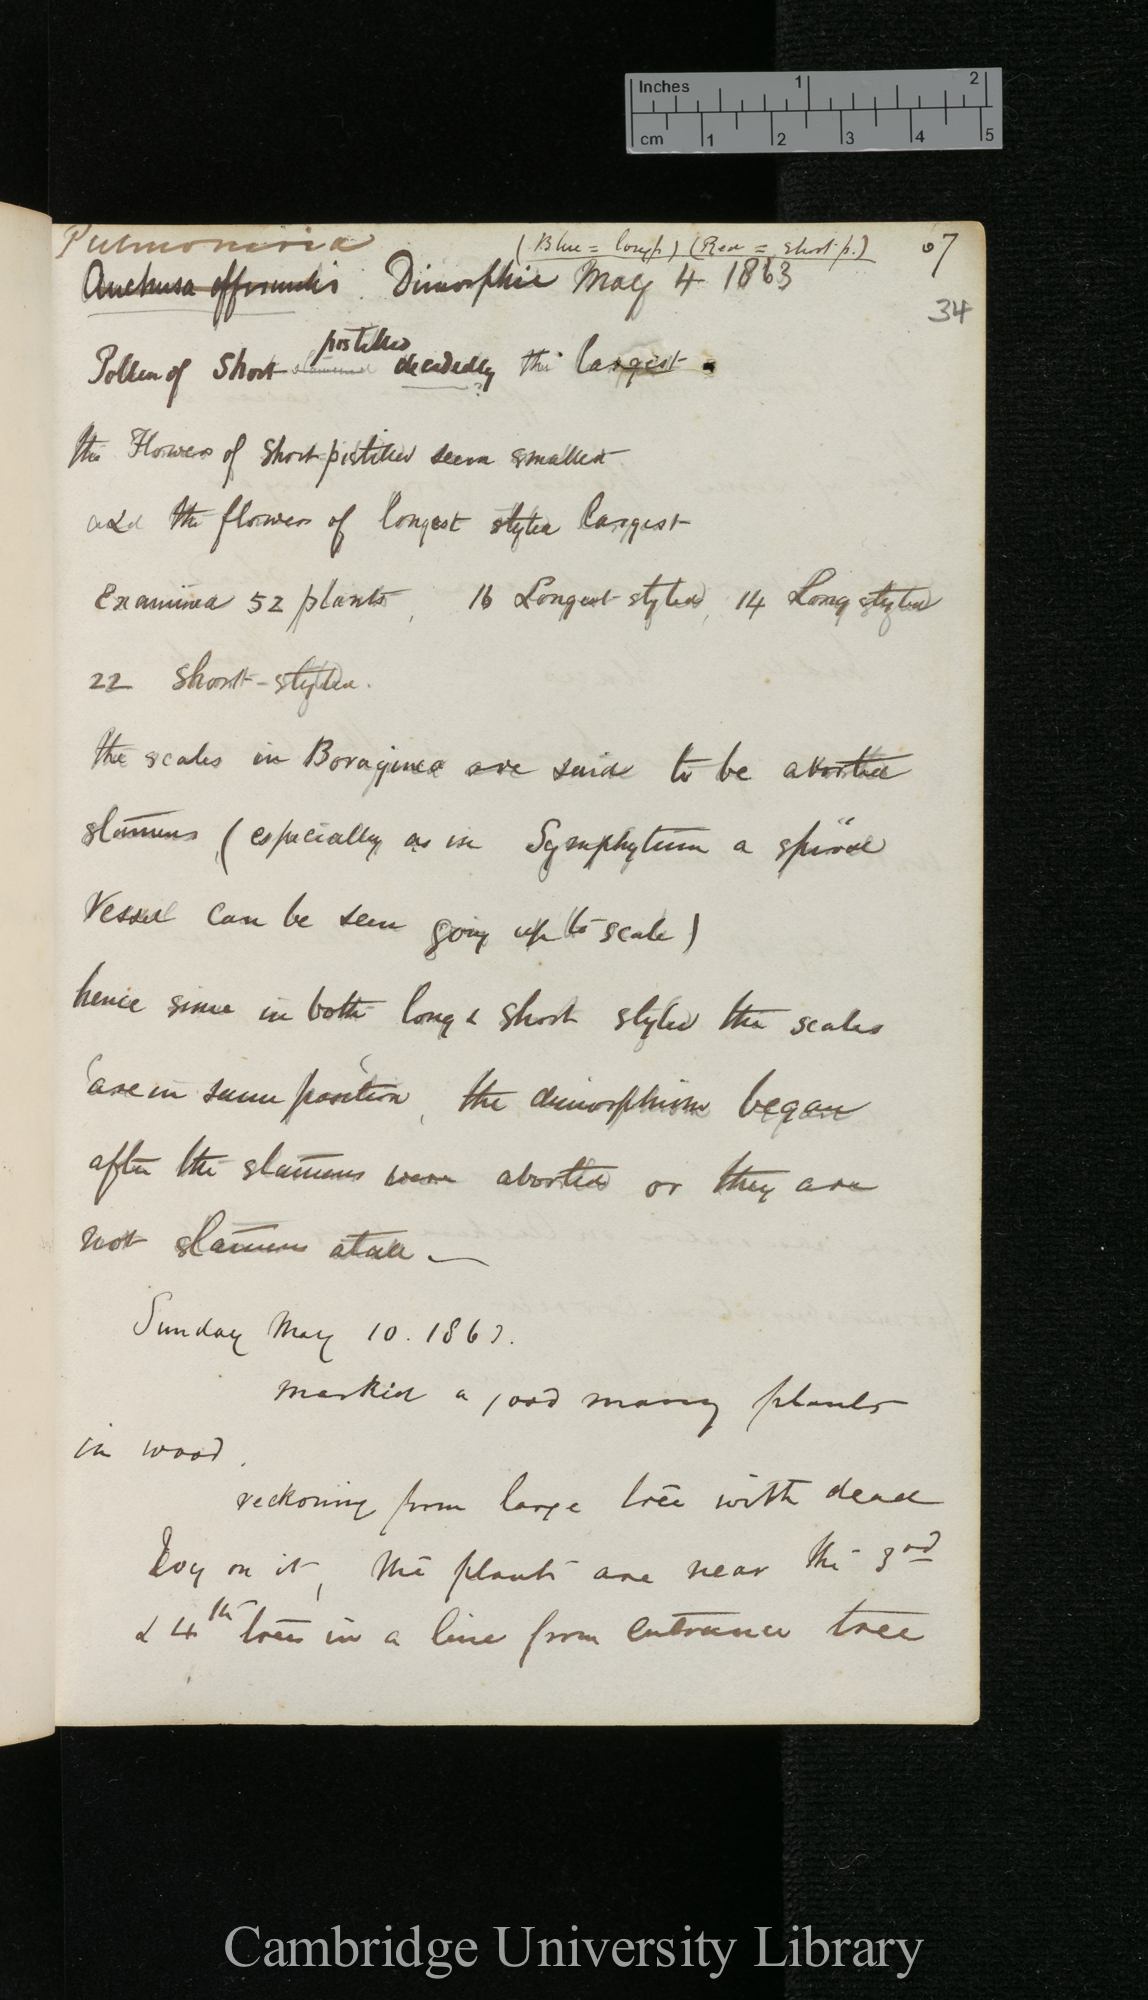 Inches 1 2
cm 1 2 3 4 5
Pulmonaria (Blue = long p.) (Red = short p.) 67
Anchusa officinalis. Dimorphic May 4 1863
34
pistilled
Pollen of Short stamened decidedly the largest.
?
the Flowers of Short pistilled seem smallest
and the flowers of longest styled largest
Examined 52 plants, 16 Longest styled, 14 Long styled
22 Short-styled.
the scales in Boragineæ are said to be aborted
stamens (especially as in Symphytum a spiral
vessel can be seen going up to scale)
hence since in both long & short styled the scales
are in same position, the dimorphism began
after the stamens were aborted or they are
not stamens atall —
Sunday May 10. 1863.
marked a good many plants
in wood.
reckoning from large tree with dead
Ivy on it, the plants are near the 3rd
& 4th trees in a line from entrance tree
Cambridge University Library